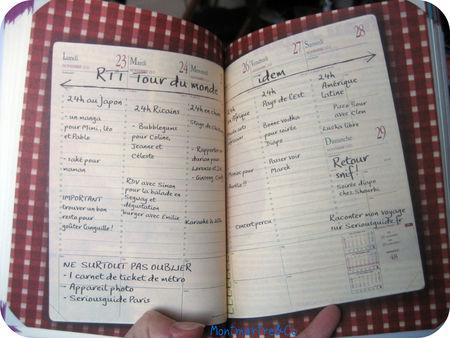 Lundi 23
Mardi 24
Mercredi
RTT Tour du monde
24h au Japon
- un manga
pour Mimi, Léo
et Pablo
- saké pour
maman
IMPORTANT
trouver un bon
resto pour
goûter l'anguille !
24h Ricains
- Bubblegums
pour Coline,
Jeanne et
Céleste
RDV avec Simon
pour la balade en
Segway et
dégustation
burger avec Emilie
24h en
- Rapporter
pour
Lorenzo et
- Ginseng
Karaoké
NE SURTOUT PAS OUBLIER
- 1 carnet de ticket de métro
- Appareil photo
- Seriousguide Paris
26 Vendredi
27 Samedi
28
idem
24h
Concert perso
24h
Pays de l'Est
Bonne vodka
pour soirée
Diapo
Passer voir
Marek
24h
Amérique
Latine !
avec Clem
Lucha libre
Dimanche 29
Retour
snif !
Soirée diapo
chez
Raconter mon voyage
sur Seriousguide.fr
48
Montmartre&Co